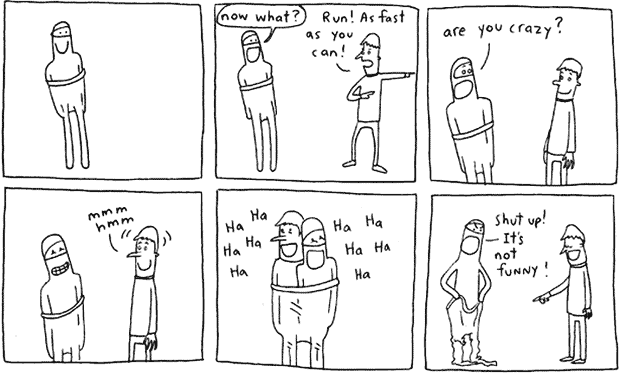 now what?
Run! As fast
as you
can!
are you crazy?
mmm
hmm
Ha
Ha Ha
Ha Ha
Ha
Ha Ha
Ha Ha
Ha
Shut up!
It's
not
FUNNY!